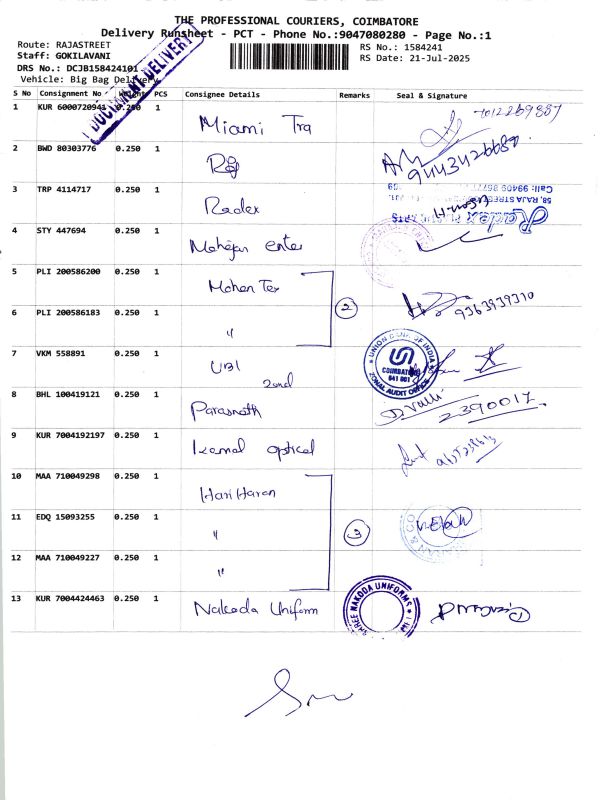 THE PROFESSIONAL COURIERS, COIMBATORE
Delivery Runsheet - PCT - Phone No.:9047080280 - Page No.:1
Route: RAJASTREET
Staff: GOKILAVANI
DRS No.: DCJB158424101
Vehicle: Big Bag Delivery
RS No.: 1584241
RS Date: 21-Jul-2025
DOCUMENT DELIVERY
S No Consignment No Weight PCS Consignee Details Remarks Seal & Signature
1 KUR 6000720941 0.250 1 Miami Tra
2 BWD 80303776 0.250 1 9443429898
3 TRP 4114717 0.250 1 Radex
58, RAJA STREET
4 STY 447694 0.250 1 Mahajan enter
5 PLI 200586200 0.250 1 Mohan Tex
2
6 PLI 200586183 0.250 1 " 9363939310
7 VKM 558891 0.250 1 UBI
2nd
UNION BANK OF INDIA
COIMBATORE
641 001
ZONAL AUDIT OFFICE
8 BHL 100419121 0.250 1 Parasnath D. Valli 2390017
9 KUR 7004192197 0.250 1 Kamal optical
10 MAA 710049298 0.250 1 Hari Haran
11 EDQ 15093255 0.250 1 "
3
12 MAA 710049227 0.250 1 "
13 KUR 7004424463 0.250 1 Nakoda Uniform
SHREE NAKODA UNIFORMS